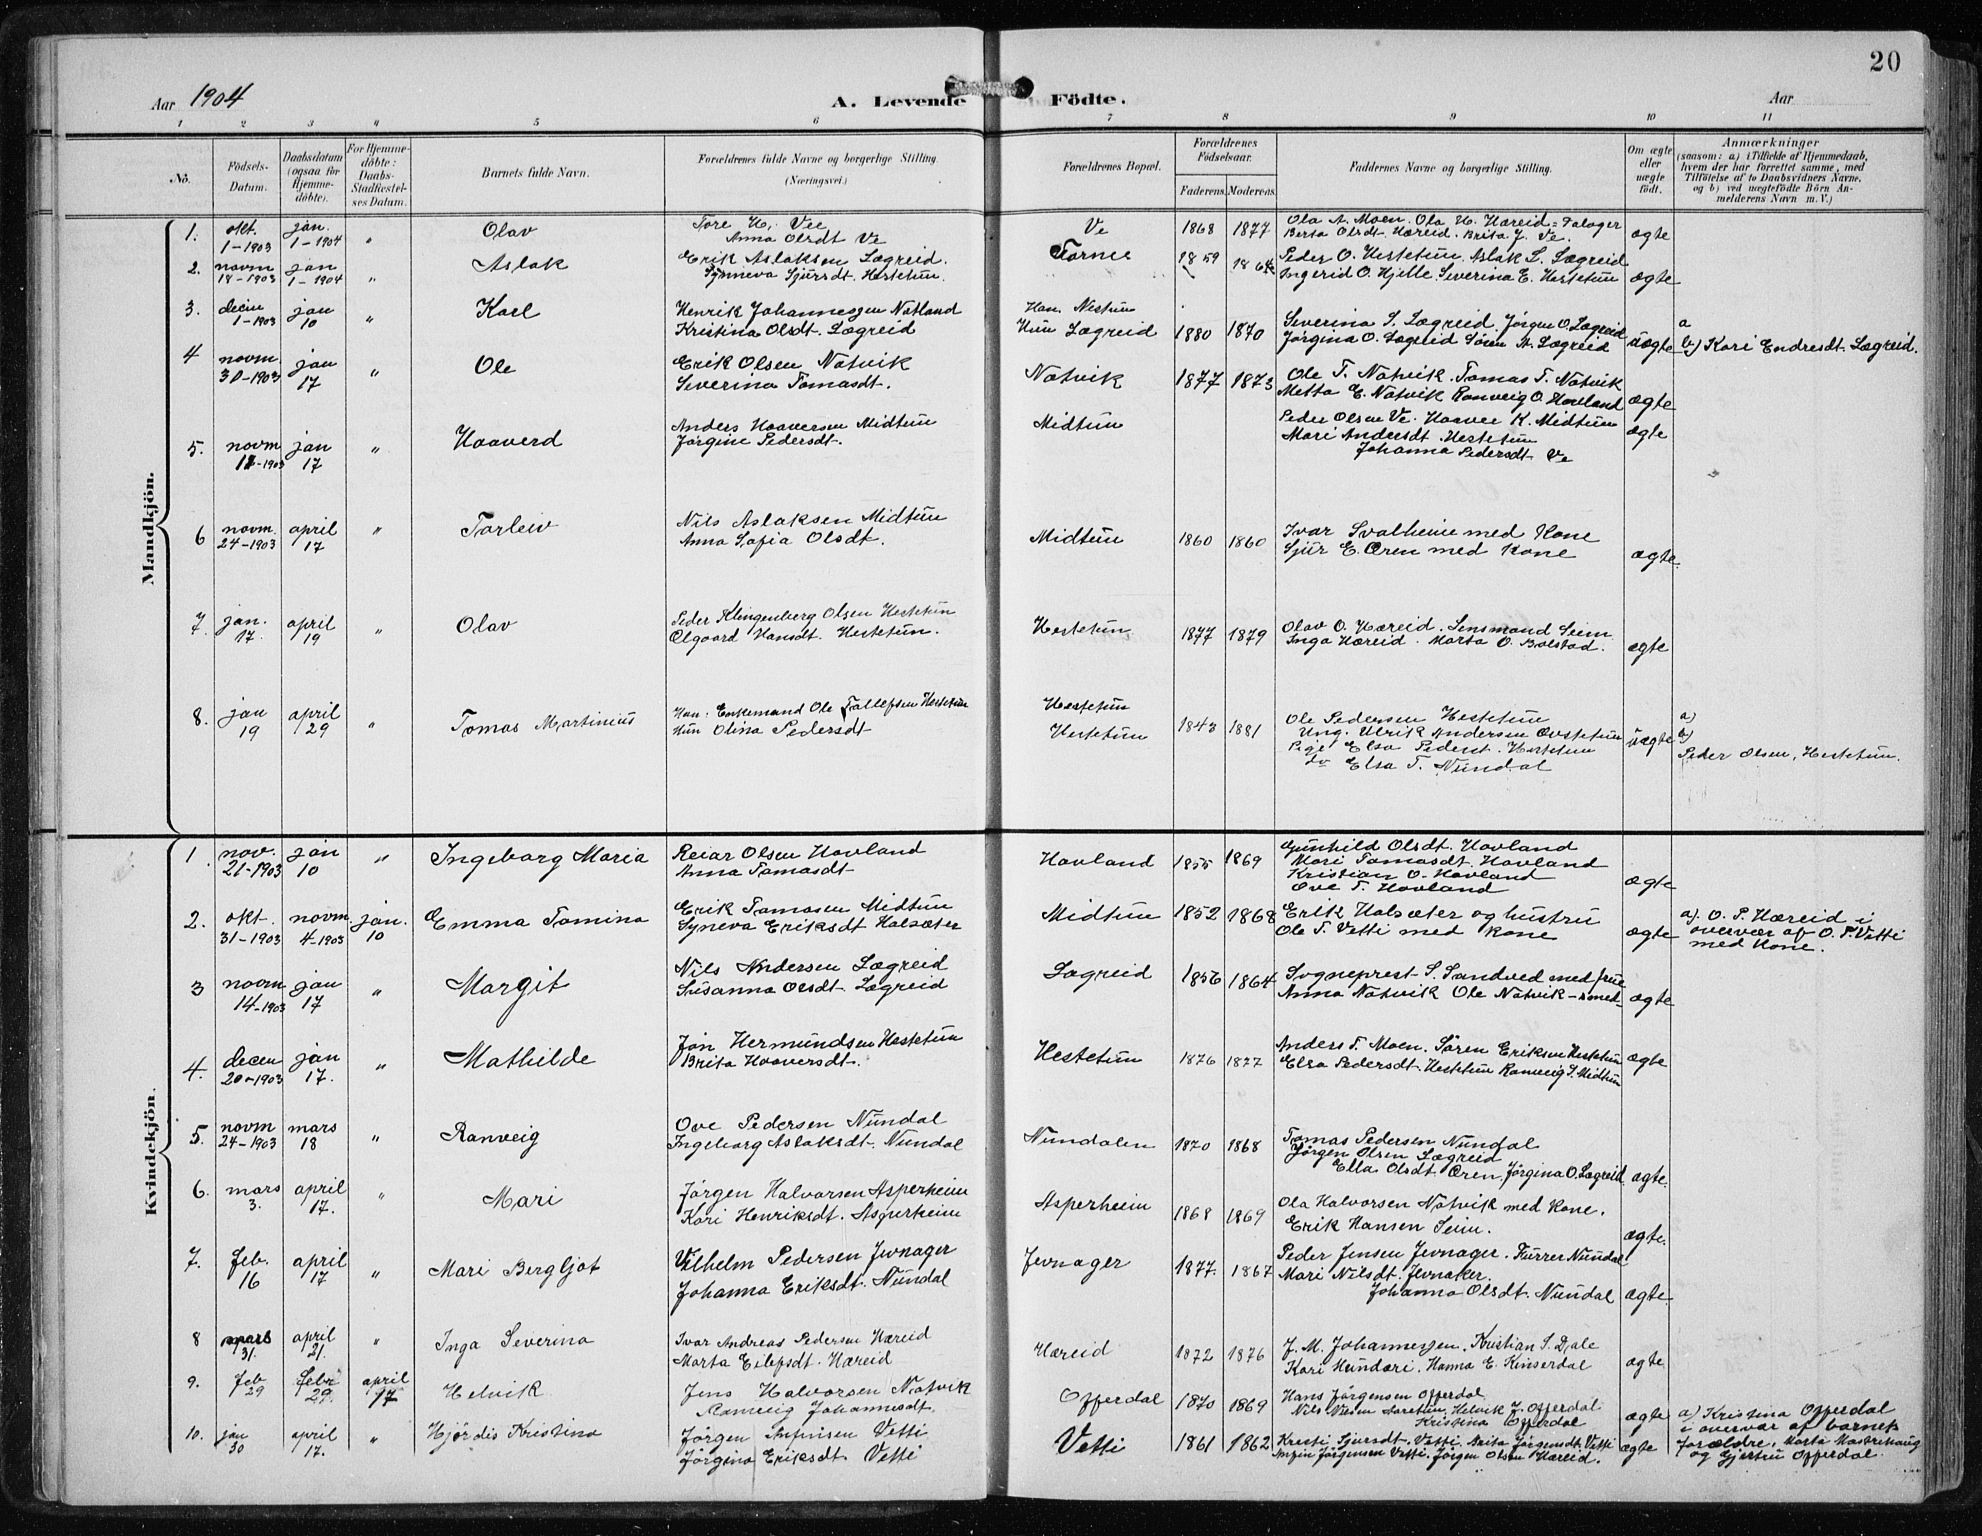 20
Aar 1904 A. Levende Födte. Aar
1 2 3 4 5 6 7 8 9 10 11
No. Födsels-Datum. Daabsdatum (ogsaa for Hjemmedöbte). For Hjemmedöbte: Daabs-Stadfæstelses Datum. Barnets fulde Navn. Forældrenes fulde Navne og borgerlige Stilling. (Næringsvei.) Forældrenes Bopæl. Forældrenes Födselsaar. Faderens. Moderens. Faddernes Navne og borgerlige Stilling. Om ægte eller uægte födt. Anmærkninger (saasom: a) i Tilfælde af Hjemmedaab, hvem der har forrettet samme, med Tilföielse af to Daabsvidners Navne, og b) ved uægtefödte Börn Anmelderens Navn m. V.)
Mandkjön.
1. okt. jan. " Olav Tore H. Vee Ve 1868 1877 Ola A. Moen. Ola H. Hæreid = Falager ægte
1-1903 1-1904 Anna Olsdt Ve Berta Olsdt. Hæreid. Brita J. Ve.
2. novm jan " Aslak Erik Aslaksen Lægreid. 1859 1864 Peder O. Hestetun. Aslak L. Lægreid ægte
18-1903 1-1904 Synneva Sjursdt. Hestetun. Ingerid O. Hjelle. Severina E. Hestetun
3. decm jan " Karl Henrik Johannesen Natland Han. Nestun 1880 1870 Severina S. Lægreid. Jörgen O. Lægreid uægte a
1-1903 10 Kristina Olsdt. Lægreid Hun Lægreid Jörgina O. Lægreid Sören A. Lægreid b) Kari Endresdt. Lægreid.
4 novm. jan " Ole Erik Olsen Natvik Natvik 1877 1873 Ole T. Natvik. Tomas T. Natvik ægte
30-1903 17 Severina Tomasdt. Metta E. Natvik Ranveig O. Hovland
5. novm jan " Haaverd Anders Haaversen Midtun Midtun Peder Olsen Ve. Haavee K. Midtun ægte
1903 17 Jörgine Pedersdt. Mari Andersdt. Hestetun
Johanna Pedersdt Ve
6 novm. april " Torleiv Nils Aslaksen Midtun Midtun 1860 1860 Ivar Svalheim med Kone ægte.
24-1903 17 Anna Sofia Olsdt. Sjur E. Øren med Kone
7. jan. april " Olav Peder Klingenberg Olsen Hestetun Hestetun 1877 1879 Olav O. Hæreid. Lensmand Seim. ægte
17. 19 Olgaard Hansdt. Hestetun. Inga Hæreid. Marta O. Bolstad.
8. jan april " Tomas Martinius Han: Enkemand Ole Tollefsen Hestetun Hestetun 1843 1881 Ole Pedersen Hestetun uægte a)
19 29 Hun Olina Pedersdt Hestetun Ung. Ulrik Andersen Øvstetun b)
Pige Elsa Pedersdt. Hestetun Peder Olsen, Hestetun.
do Elsa T. Nundal
Kvindekjön.
1 nov. jan " Ingeborg Maria Reiar Olsen Hovland Hovland 1855 1869 Gunhild Olsdt. Hovland ægte
21-1903 10 Anna Tomasdt Mari Tomasdt. Hovland
Kristian O. Hovland
Ove T. Hovland
2. okt. novm. jan. Emma Tomina Erik Tomasen Midtun Midtun 1852 1868 Erik Halsæter og hustru ægte a). O. P. Hæreid i
31-1903 4-1903 10 Syneva Eriksdt Halsæter Ole T. Vetti med kone overvær af O. T. Vetti
med Kone.
3 novm jan " Margit Nils Andersen Lægreid Lægreid 1856 1864 Sogneprest S. Sandved med frue ægte
14-1903 17 Susanna Olsdt. Lægreid Anna Natvik Ole Natvik
4. decem jan " Mathilde Jon Hermundsen Hestetun Hestetun 1876 1877 Anders T. Moen. Sören Eriksen Hestetun ægte
20-1903 17. Brita Haaversdt. Elsa Pedersdt. Hestetun Ranveig S. Midtun
5. novm mars " Ranveig Ove Pedersen Nundal Nundalen 1870 1868 Tomas Pedersen Nundal ægte.
24-1903 18 Ingeborg Aslaksdt. Nundal Jörgen Olsen Lægreid
Ella Olsdt. Øren. Jörgina O. Lægreid
6. mars april " Mari Jörgen Halvorsen Asperheim Asperheim 1868 1869 Ola Halvorsen Natvik med Kone. ægte.
3. 17. Kari Henriksdt. Asperheim Erik Hansen Seim.
7. feb. april " Mari Bergljot Vilhelm Pedersen Jevnager Jevnager 1877. 1867 Peder Jensen Jevnager. Nundal ægte.
16 17 Johanna Eriksdt. Nundal Mari Nilsdt. Jevnaker.
Johanna Olsdt. Nundal
8 mars april " Inga Severina Ivar Andreas Pedersen Hæreid Hæreid 1872 1876 J. M. Johannessen. Kristian S. Dale ægte
31. 21. Marta Eilefsdt. Hæreid Kari Hundere. Hanna E. Kinserdal
9. feb febr april Helvik Jens Halvorsen Natvik Offerdal 1870 1869 Hans Jörgensen Offerdal ægte a) Kristina Offerdal
29 29. 17 Ranveig Johannesdt. Nils Nilsen Helvik J. Offerdal i overvær af barnets
Kristina Offerdal forældre. Marta
10. jan april " Hjördis Kristina Jörgen Anfinsen Vetti Vetti 1861 1862 Kristi Sjursdt. Vetti. Brita Jörgensdt. Vetti ægte og Gjertru Offerdal
30 17. Jörgina Eriksdt. Vetti Anfin Jörgensen Vetti. Jörgen Olsen Hæreid.